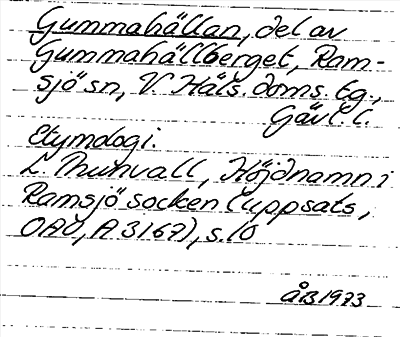 Gummahällan, del av
Gummahällberget, Ram-
sjö sn, V Häls. doms. tg.,
Gävl. l.
Etymologi.
L. Thunvall, Höjdnamn i
Ramsjö socken (uppsats,
OAU, A 3167), s. 10
ÅB 1973